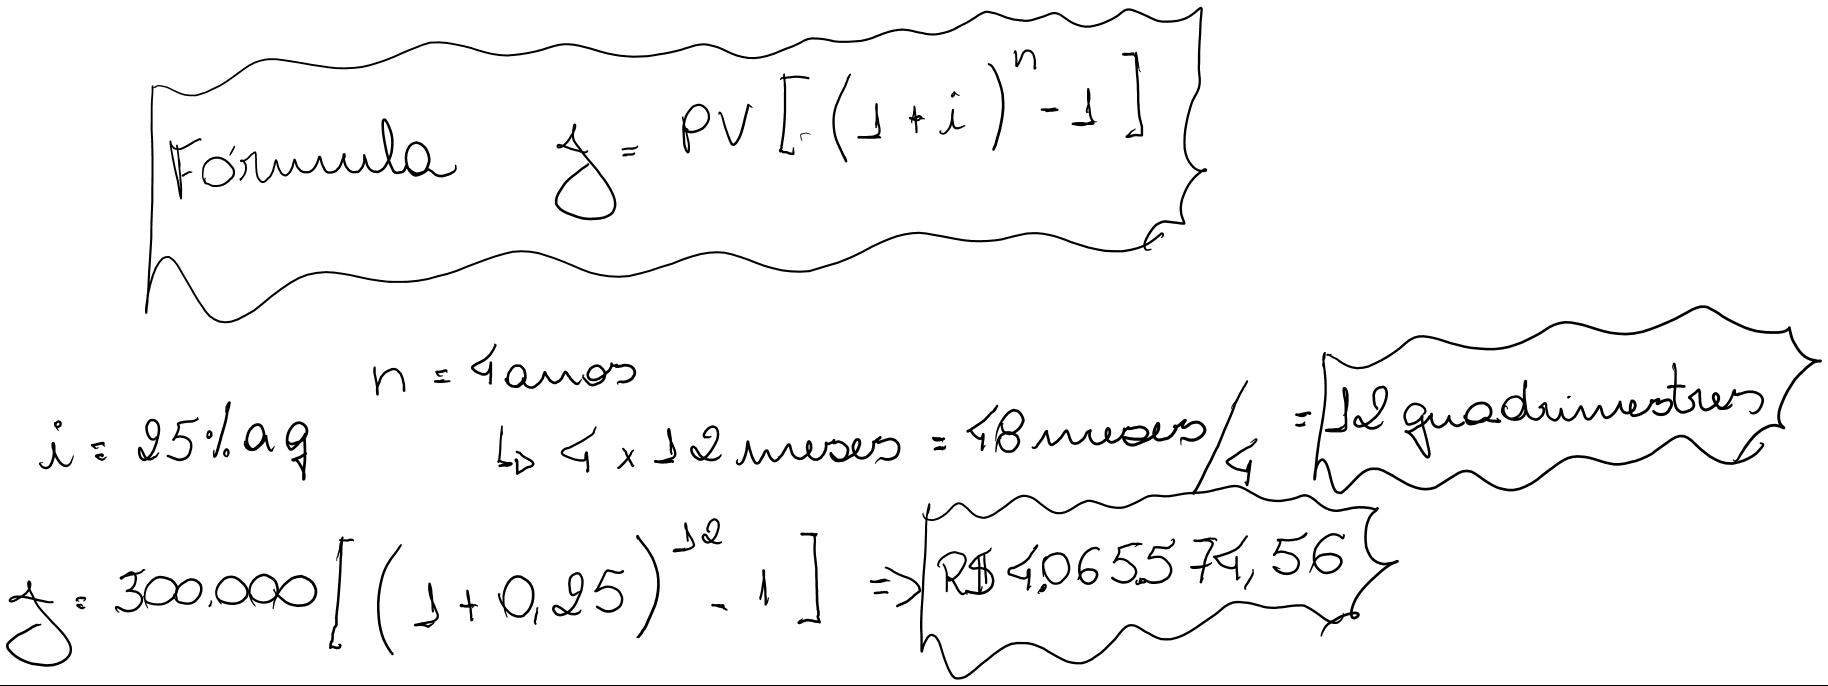 Fórmula J = PV [ (1 + i)^n - 1 ]
n = 4 anos
i = 25% aq ↳ 4 x 12 meses = 48 meses / 4 = 12 quadrimestres
J = 300.000 [ (1 + 0,25)^12 - 1 ] => R$ 4.065.574,56